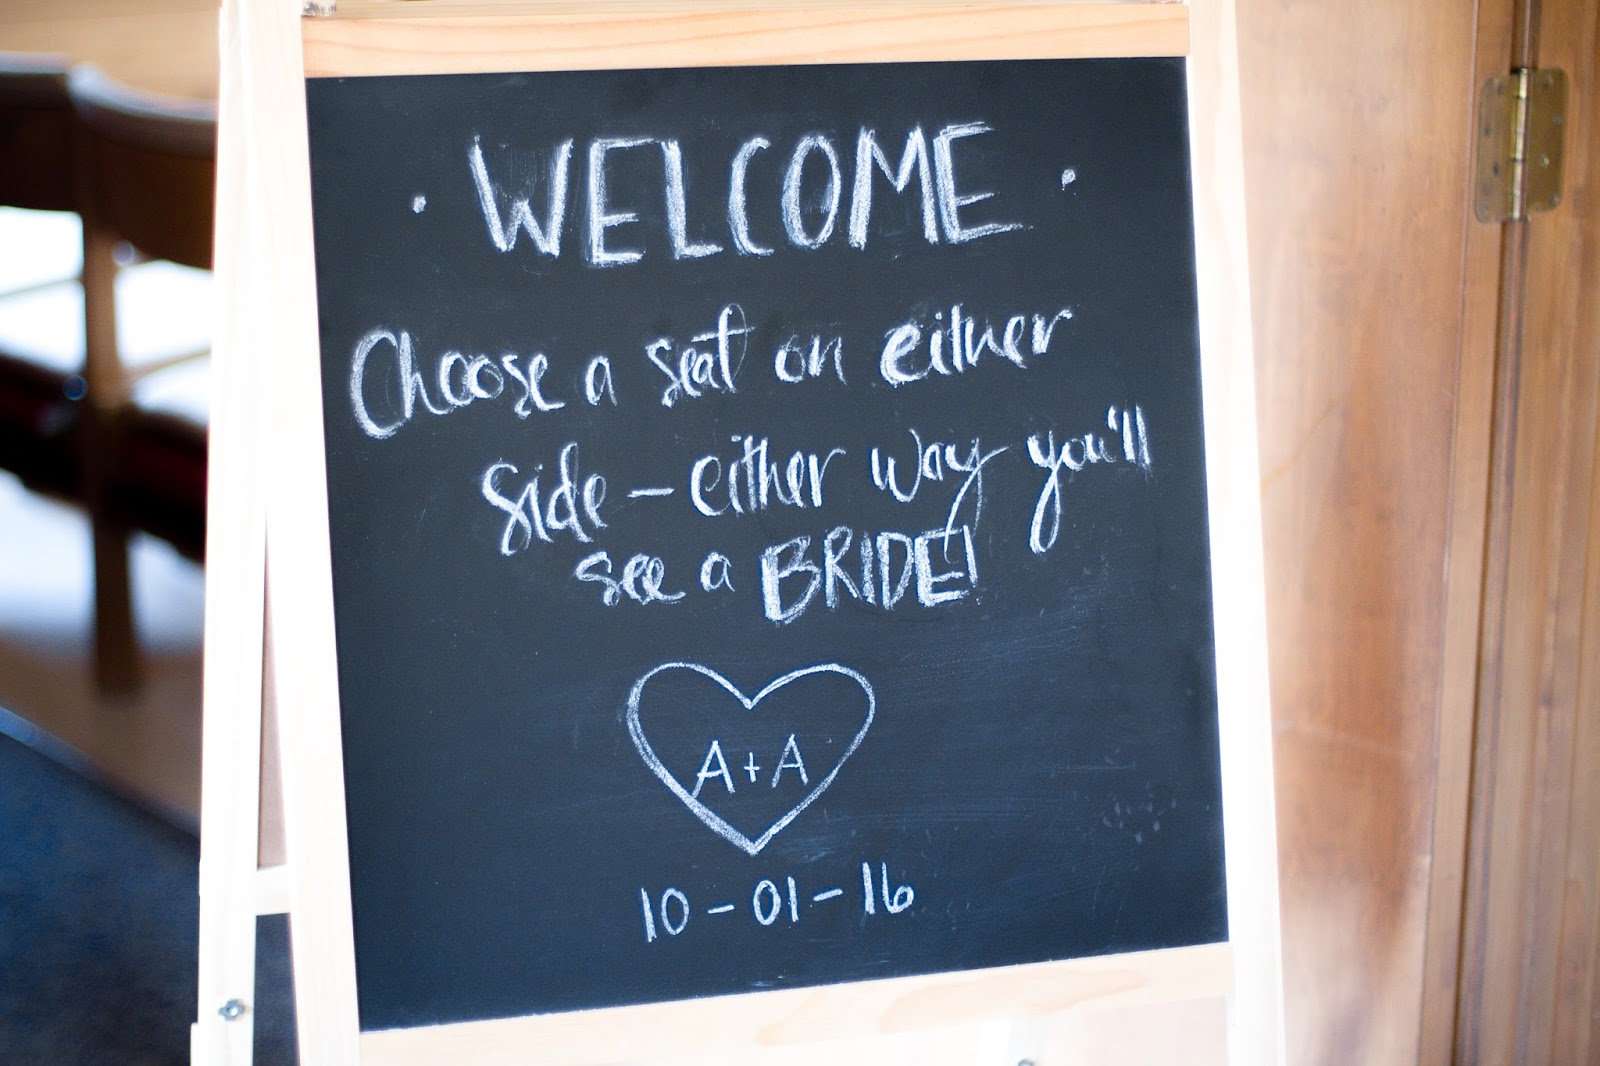 · WELCOME ·
Choose a seat on either
side – either way you'll
see a BRIDE!
A + A
10 - 01 - 16